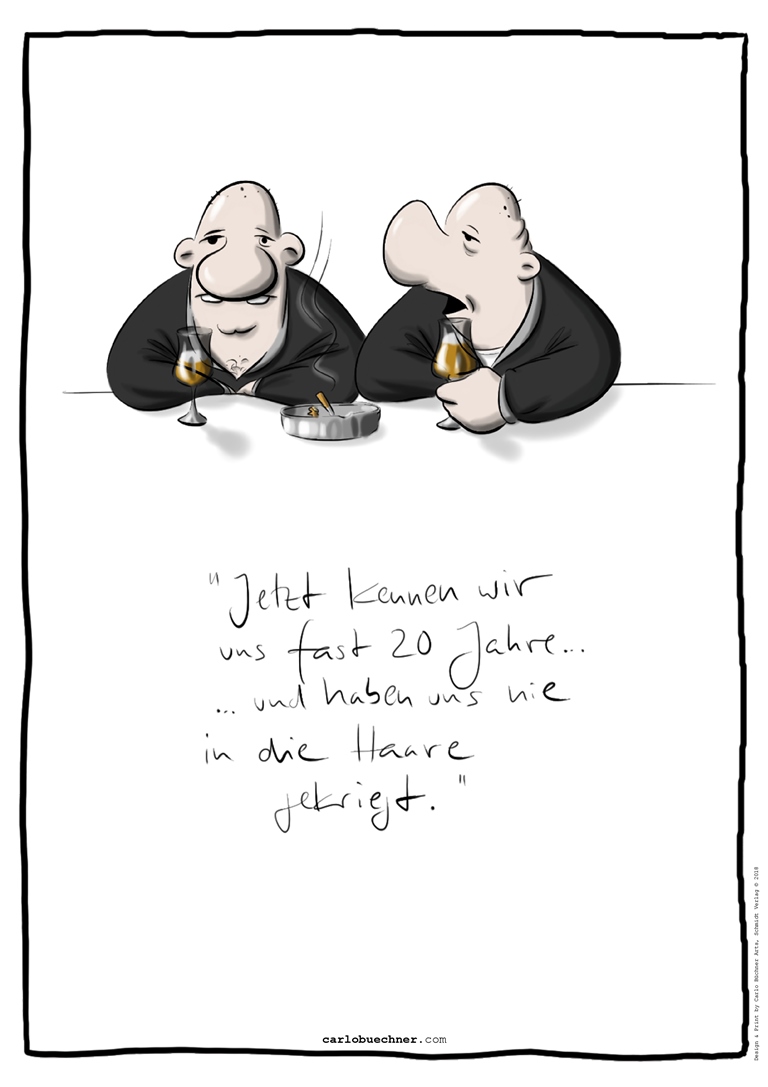 "Jetzt kennen wir
uns fast 20 Jahre...
... und haben uns nie
in die Haare
gekriegt."
carlobuechner.com
Design & Print by Carlo Büchner Arts, Schmidt Verlag © 2018